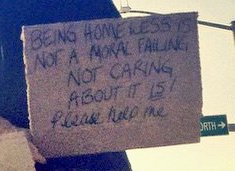 BEING HOMELESS IS
NOT A MORAL FAILING,
NOT CARING
ABOUT IT IS!
Please help me
ORTH →